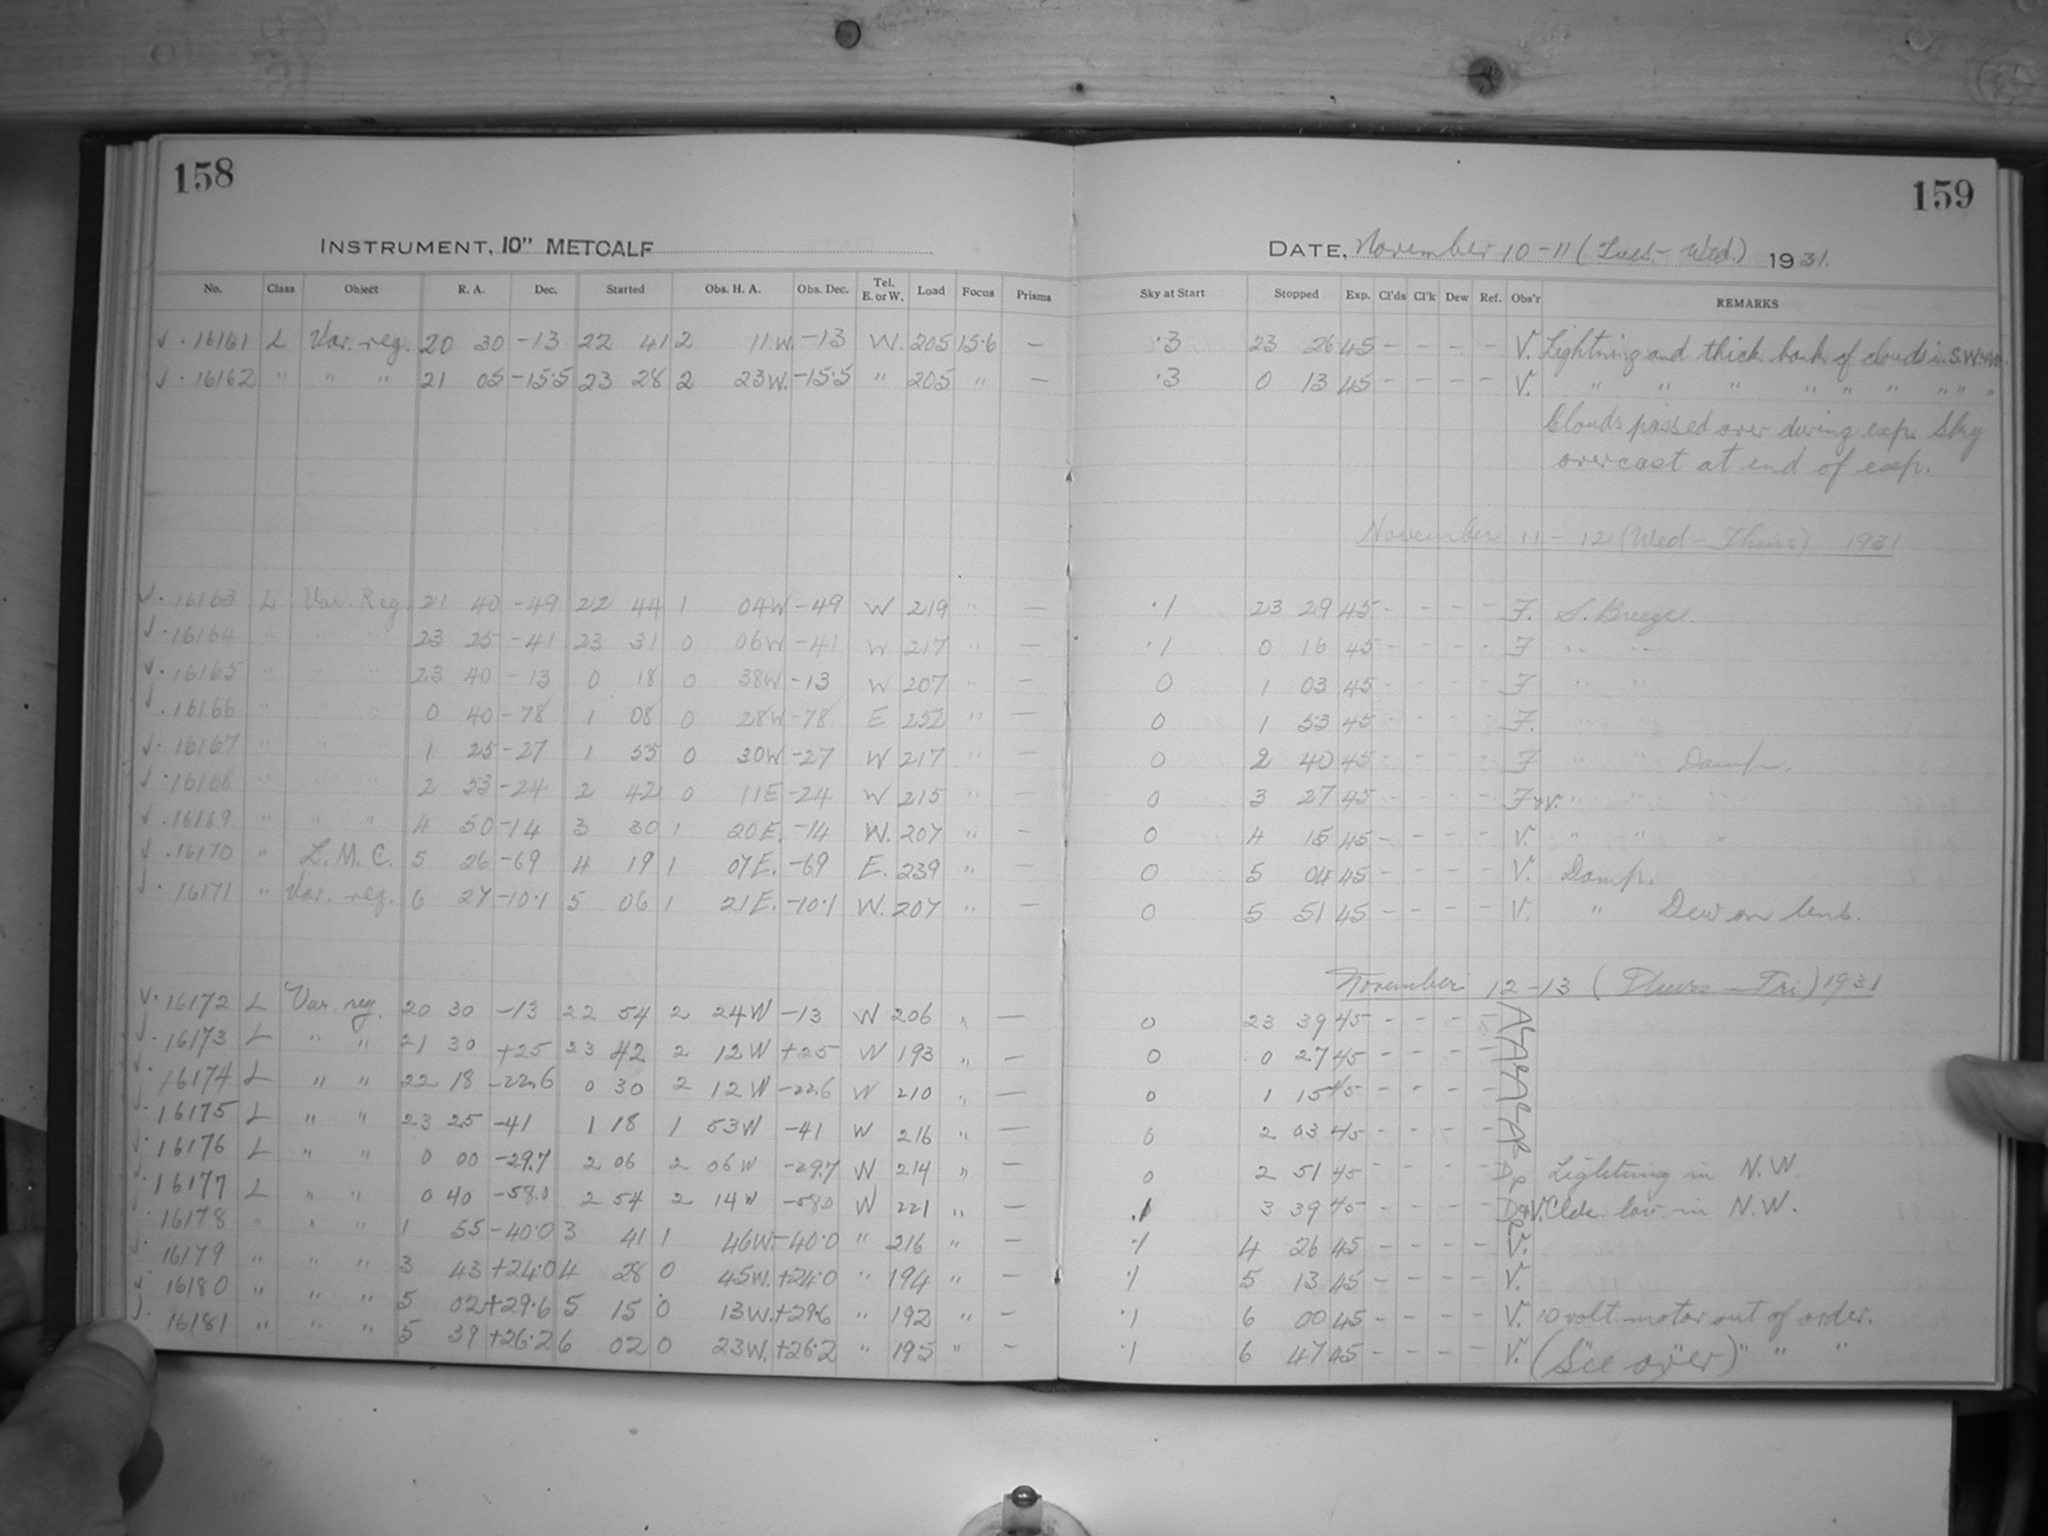 158
INSTRUMENT, 10" METCALF
No. Class Object R. A. Dec. Started Obs. H. A. Obs. Dec. Tel. E. or W. Load Focus Prisms
√ · 16161 L Var. reg. 20 30 -13 22 41 2 11 W. -13 W. 205 15.6 —
√ · 16162 " " " 21 05 -15.5 23 28 2 23 W. -15.5 " 205 " —
√ · 16163 L Var. Reg. 21 40 -49 22 44 1 04 W -49 W 219 " —
√ · 16164 " " " 23 25 -41 23 31 0 06 W -41 W 217 " —
√ · 16165 " " " 23 40 -13 0 18 0 38 W -13 W 207 " —
√ · 16166 " " " 0 40 -78 1 08 0 28 W -78 E 252 " —
√ · 16167 " " " 1 25 -27 1 55 0 30 W -27 W 217 " —
√ · 16168 " " " 2 53 -24 2 42 0 11 E -24 W 215 " —
√ · 16169 " " " 4 50 -14 3 30 1 20 E. -14 W. 207 " —
√ · 16170 " L. M. C. 5 26 -69 4 19 1 07 E. -69 E. 239 " —
√ · 16171 " Var. reg. 6 27 -10.1 5 06 1 21 E. -10.1 W. 207 " —
√ · 16172 L Var. reg. 20 30 -13 22 54 2 24 W -13 W 206 " —
√ · 16173 L " " 21 30 +25 23 42 2 12 W +25 W 193 " —
√ · 16174 L " " 22 18 -22.6 0 30 2 12 W -22.6 W 210 " —
√ · 16175 L " " 23 25 -41 1 18 1 53 W -41 W 216 " —
√ · 16176 L " " 0 00 -29.7 2 06 2 06 W -29.7 W 214 " —
√ · 16177 L " " 0 40 -58.0 2 54 2 14 W -58.0 W 221 " —
√ · 16178 " " " 1 55 -40.0 3 41 1 46 W. -40.0 " 216 " —
√ · 16179 " " " 3 43 +24.0 4 28 0 45 W. +24.0 " 194 " —
√ · 16180 " " " 5 02 +29.6 5 15 0 13 W. +29.6 " 192 " —
√ · 16181 " " " 5 39 +26.2 6 02 0 23 W. +26.2 " 195 " —
159
DATE, November 10-11 (Tues.- Wed.) 1931.
Sky at Start Stopped Exp. Cl'ds Cl'k Dew Ref. Obs'r REMARKS
.3 23 26 45 - - - - V. Lightning and thick bank of clouds in S.W.
.3 0 13 45 - - - - V. " " " " " " " " "
Clouds passed over during exp. Sky
overcast at end of exp.
November 11 - 12 (Wed - Thurs) 1931
.1 23 29 45 - - - - F. S. Breeze.
.1 0 16 45 - - - - F " "
0 1 03 45 - - - - F " "
0 1 53 45 - - - - F. " "
0 2 40 45 - - - - F " " Damp.
0 3 27 45 - - - - F+V. " " "
0 4 15 45 - - - - V. " " "
0 5 04 45 - - - - V. Damp.
0 5 51 45 - - - - V. " Dew on lens.
November 12-13 (Thurs - Fri) 1931
0 23 39 45 - - - -
0 0 27 45 - - - -
0 1 15 45 - - - -
0 2 03 45 - - - -
0 2 51 45 - - - - Lightning in N.W.
.1 3 39 45 - - - - Clds. low in N.W.
.1 4 26 45 - - - - V.
.1 5 13 45 - - - - V.
.1 6 00 45 - - - - V. 10 volt motor out of order.
.1 6 47 45 - - - - V. (See over) " " "